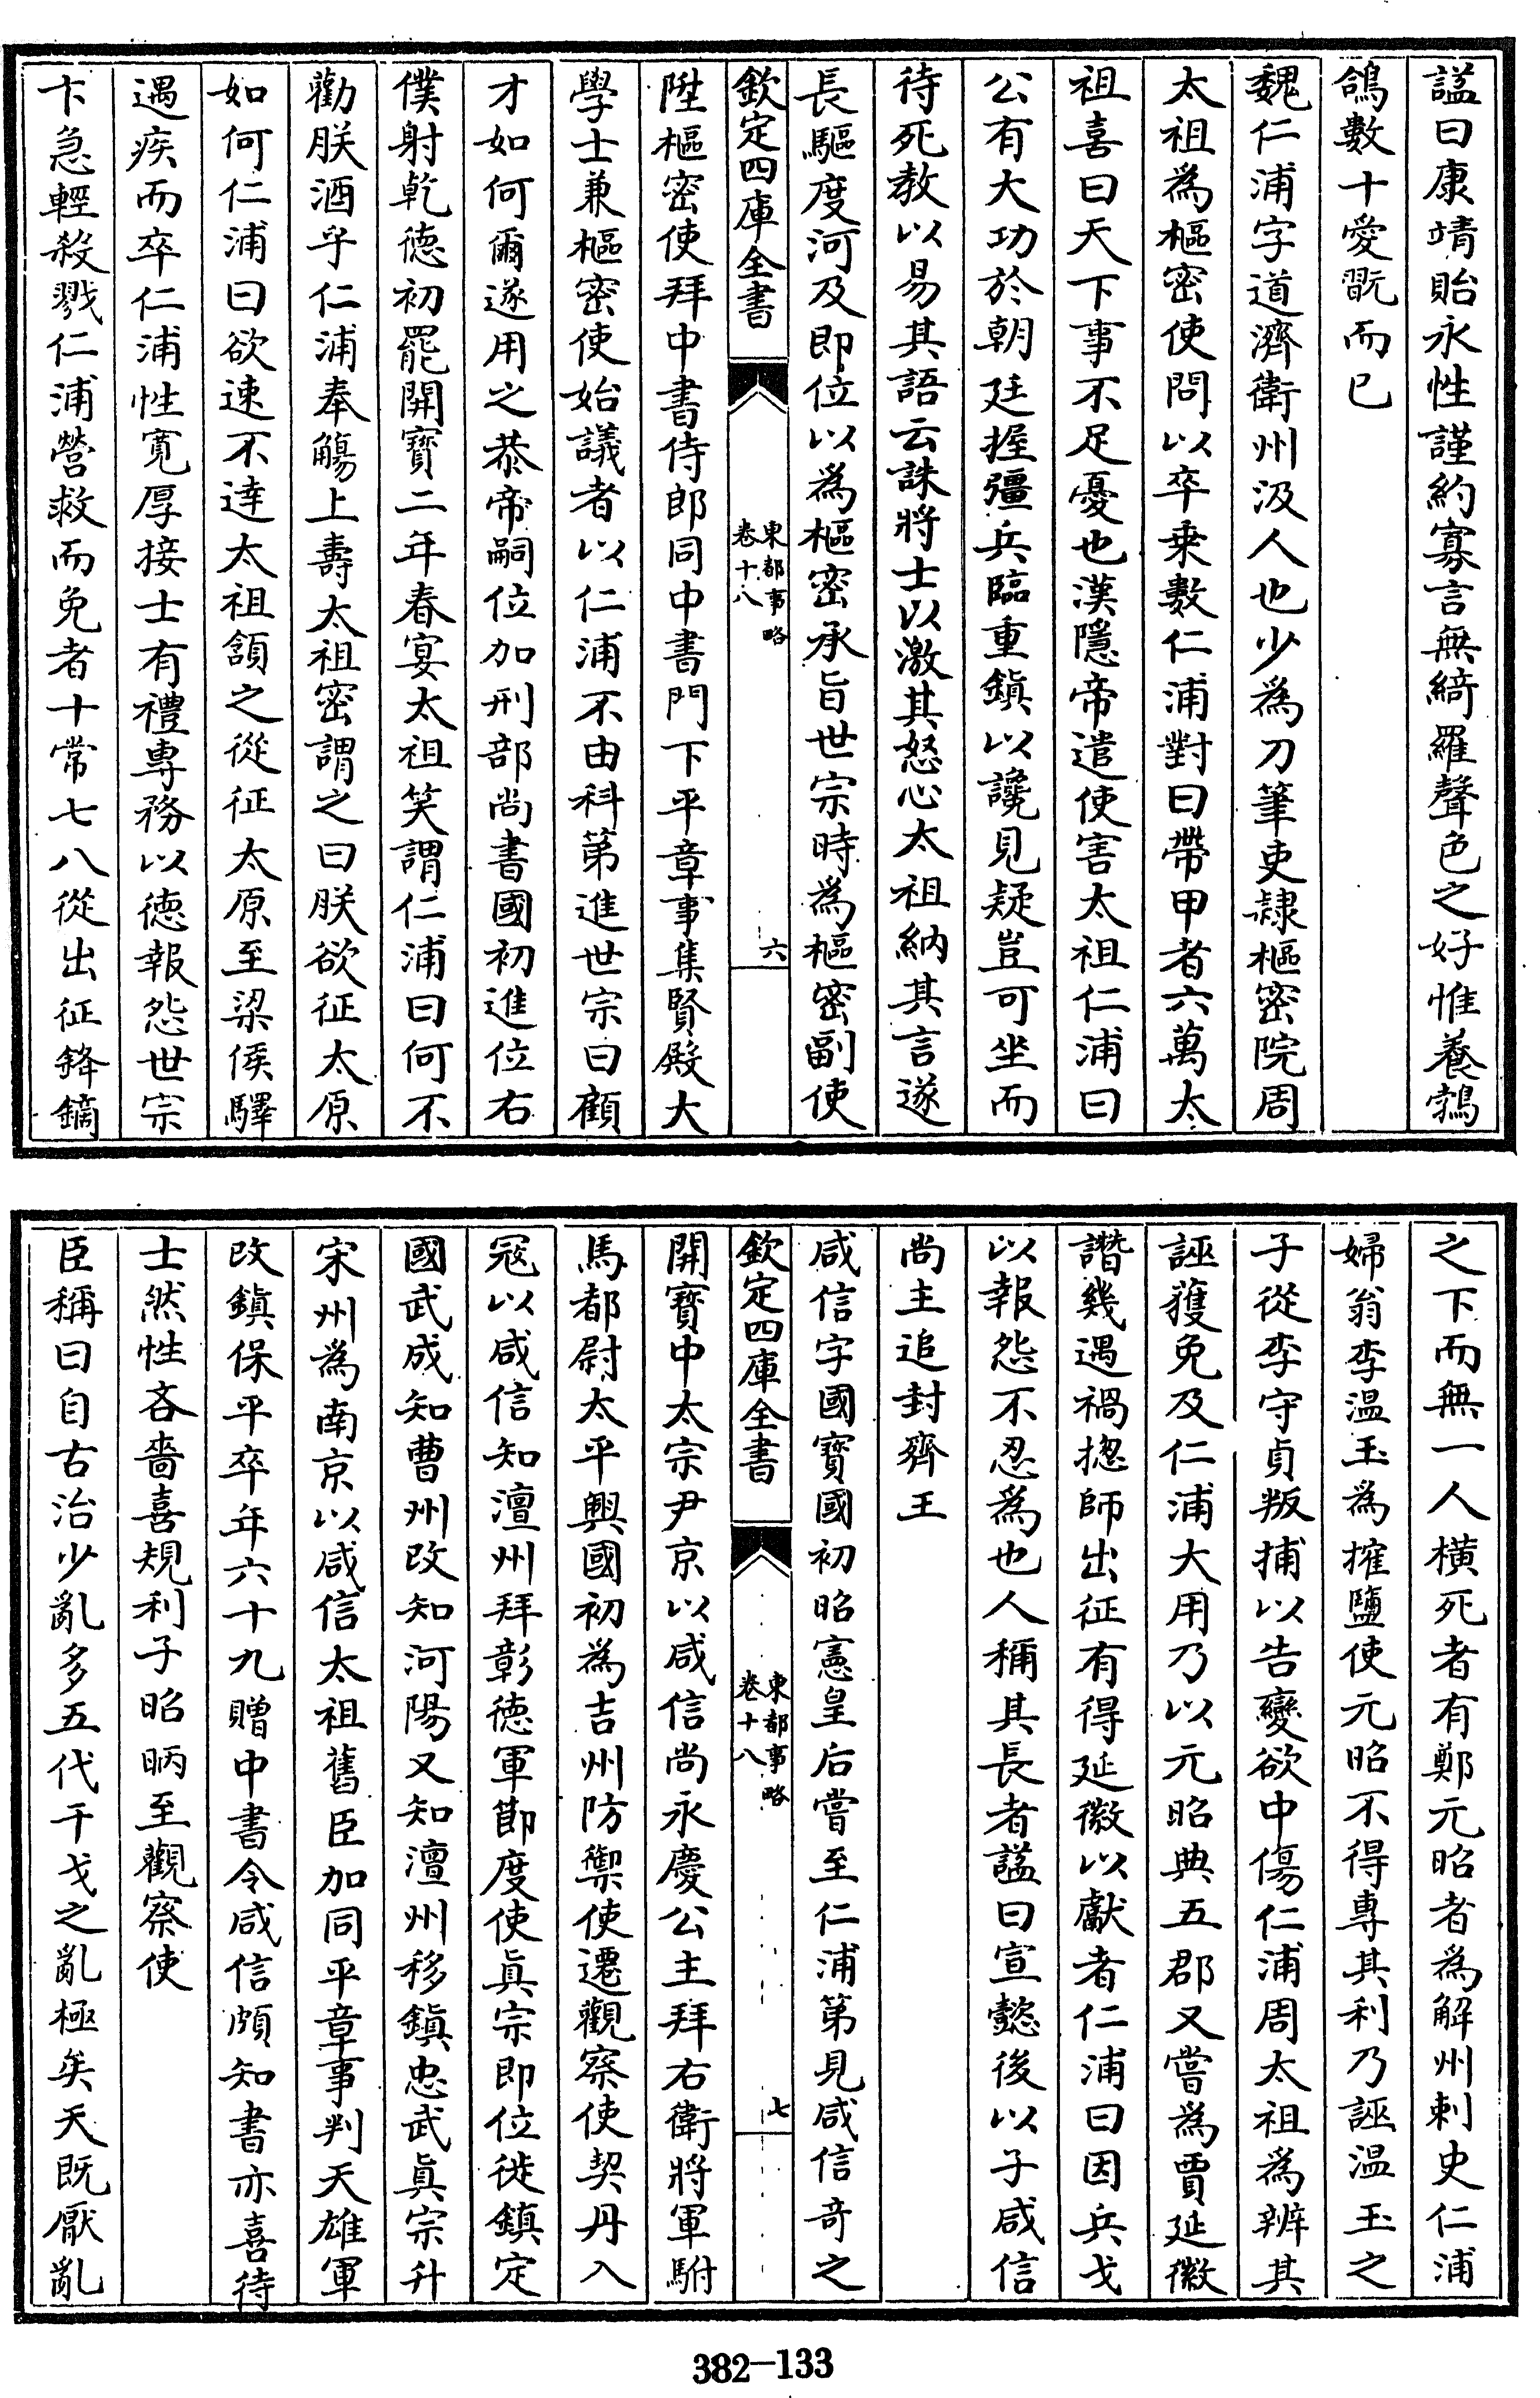 諡曰康靖貽永性謹約寡言無綺羅聲色之好惟養鵓
鴿數十愛翫而已
魏仁浦字道濟衛州汲人也少為刀筆吏隷樞密院周
太祖為樞密使問以卒乗數仁浦對曰帶甲者六萬太
祖喜曰天下事不足憂也漢隱帝遣使害太祖仁浦曰
公有大功於朝廷握彊兵臨重鎮以讒見疑豈可坐而
待死教以易其語云誅將士以激其怒心太祖納其言遂
長驅度河及即位以為樞密承旨世宗時為樞密副使
欽定四庫全書
東都事略
卷十八
六
陞樞密使拜中書侍郎同中書門下平章事集賢殿大
學士兼樞密使始議者以仁浦不由科第進世宗曰顧
才如何爾遂用之恭帝嗣位加刑部尚書國初進位右
僕射乾德初罷開寶二年春宴太祖笑謂仁浦曰何不
勸朕酒乎仁浦奉觴上壽太祖密謂之曰朕欲征太原
如何仁浦曰欲速不達太祖頷之從征太原至梁侯驛
遇疾而卒仁浦性寛厚接士有禮專務以德報怨世宗
卞急輕殺戮仁浦營救而免者十常七八從出征鋒鏑
之下而無一人橫死者有鄭元昭者為解州刺史仁浦
婦翁李温玉為搉鹽使元昭不得專其利乃誣温玉之
子從李守貞叛捕以告變欲中傷仁浦周太祖為辨其
誣獲免及仁浦大用乃以元昭典五郡又嘗為賈延徽
譖幾遇禍揔師出征有得延徽以獻者仁浦曰因兵戈
以報怨不忍為也人稱其長者諡曰宣懿後以子咸信
尚主追封齊王
咸信字國寶國初昭憲皇后嘗至仁浦第見咸信奇之
欽定四庫全書
東都事略
卷十八
七
開寶中太宗尹京以咸信尚永慶公主拜右衛將軍駙
馬都尉太平興國初為吉州防禦使遷觀察使契丹入
冦以咸信知澶州拜彰德軍節度使真宗即位徙鎮定
國武成知曹州改知河陽又知澶州移鎮忠武真宗升
宋州為南京以咸信太祖舊臣加同平章事判天雄軍
改鎮保平卒年六十九贈中書令咸信頗知書亦喜待
士然性吝嗇喜規利子昭昞至觀察使
臣稱曰自古治少亂多五代干戈之亂極矣天既厭亂
382—133